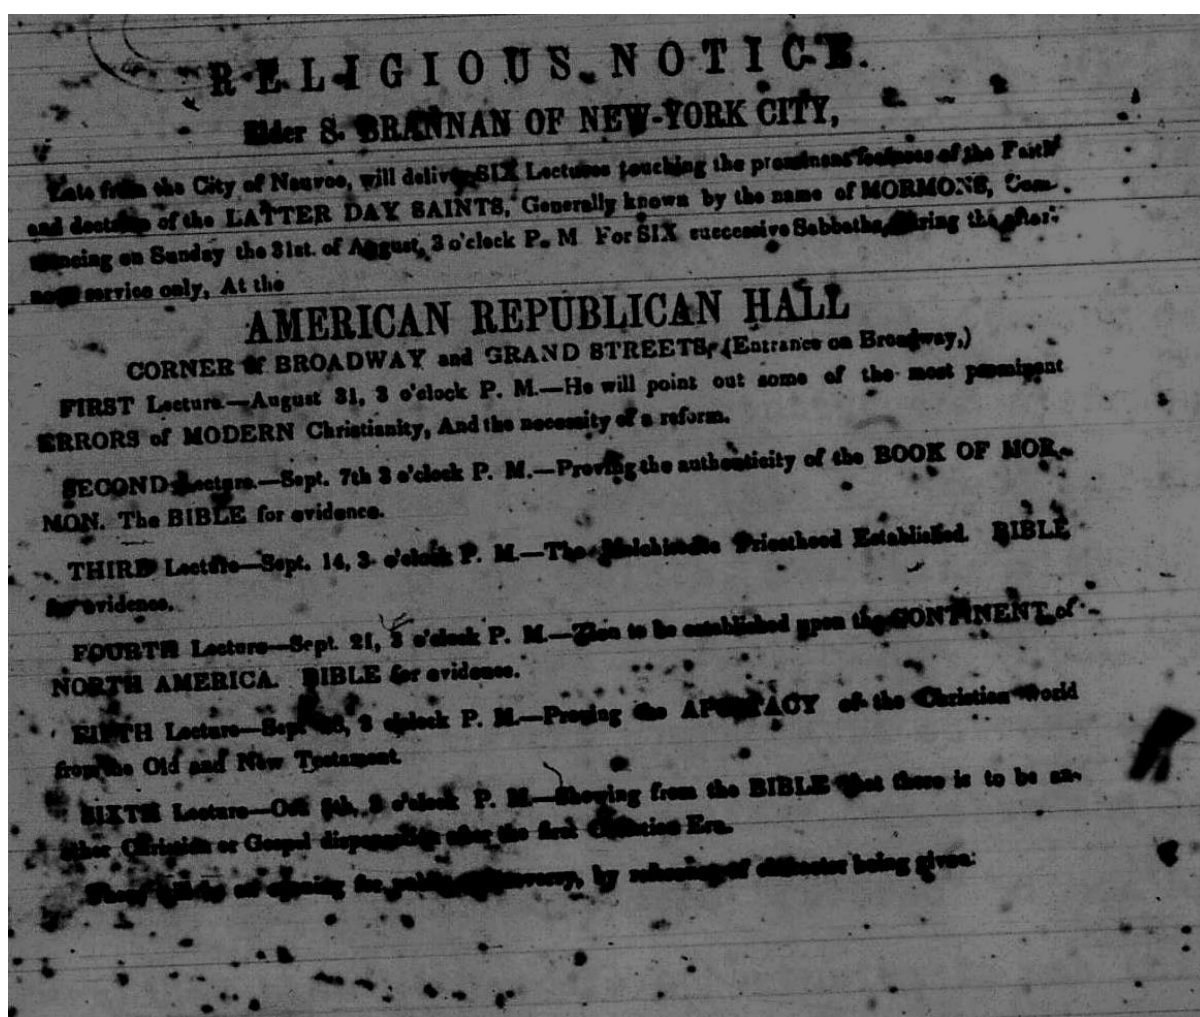 RELIGIOUS NOTICE.
Elder S. BRANNAN OF NEW-YORK CITY,
Late from the City of Nauvoo, will deliver SIX Lectures touching the prominent features of the Faith
and doctrine of the LATTER DAY SAINTS, Generally known by the name of MORMONS, Com-
mencing on Sunday the 31st. of August, 3 o'clock P. M For SIX successive Sabbaths, during the after-
noon service only, At the
AMERICAN REPUBLICAN HALL
CORNER of BROADWAY and GRAND STREETS, (Entrance on Broadway,)
FIRST Lecture.—August 31, 3 o'clock P. M.—He will point out some of the most prominent
ERRORS of MODERN Christianity, And the necessity of a reform.
SECOND Lecture.—Sept. 7th 3 o'clock P. M.—Proving the authenticity of the BOOK OF MOR-
MON. The BIBLE for evidence.
THIRD Lecture—Sept. 14, 3 o'clock P. M.—The Melchisedic Priesthood Established. BIBLE
for evidence.
FOURTH Lecture—Sept. 21, 3 o'clock P. M.—Zion to be established upon the CONTINENT of
NORTH AMERICA. BIBLE for evidence.
FIFTH Lecture—Sept 28, 3 o'clock P. M.—Proving the APOSTACY of the Christian world
from the Old and New Testament.
SIXTH Lecture—Oct 5th, 3 o'clock P. M.—Showing from the BIBLE that there is to be an-
other Christian or Gospel dispensation after the first Christian Era.
for public by of character being given.